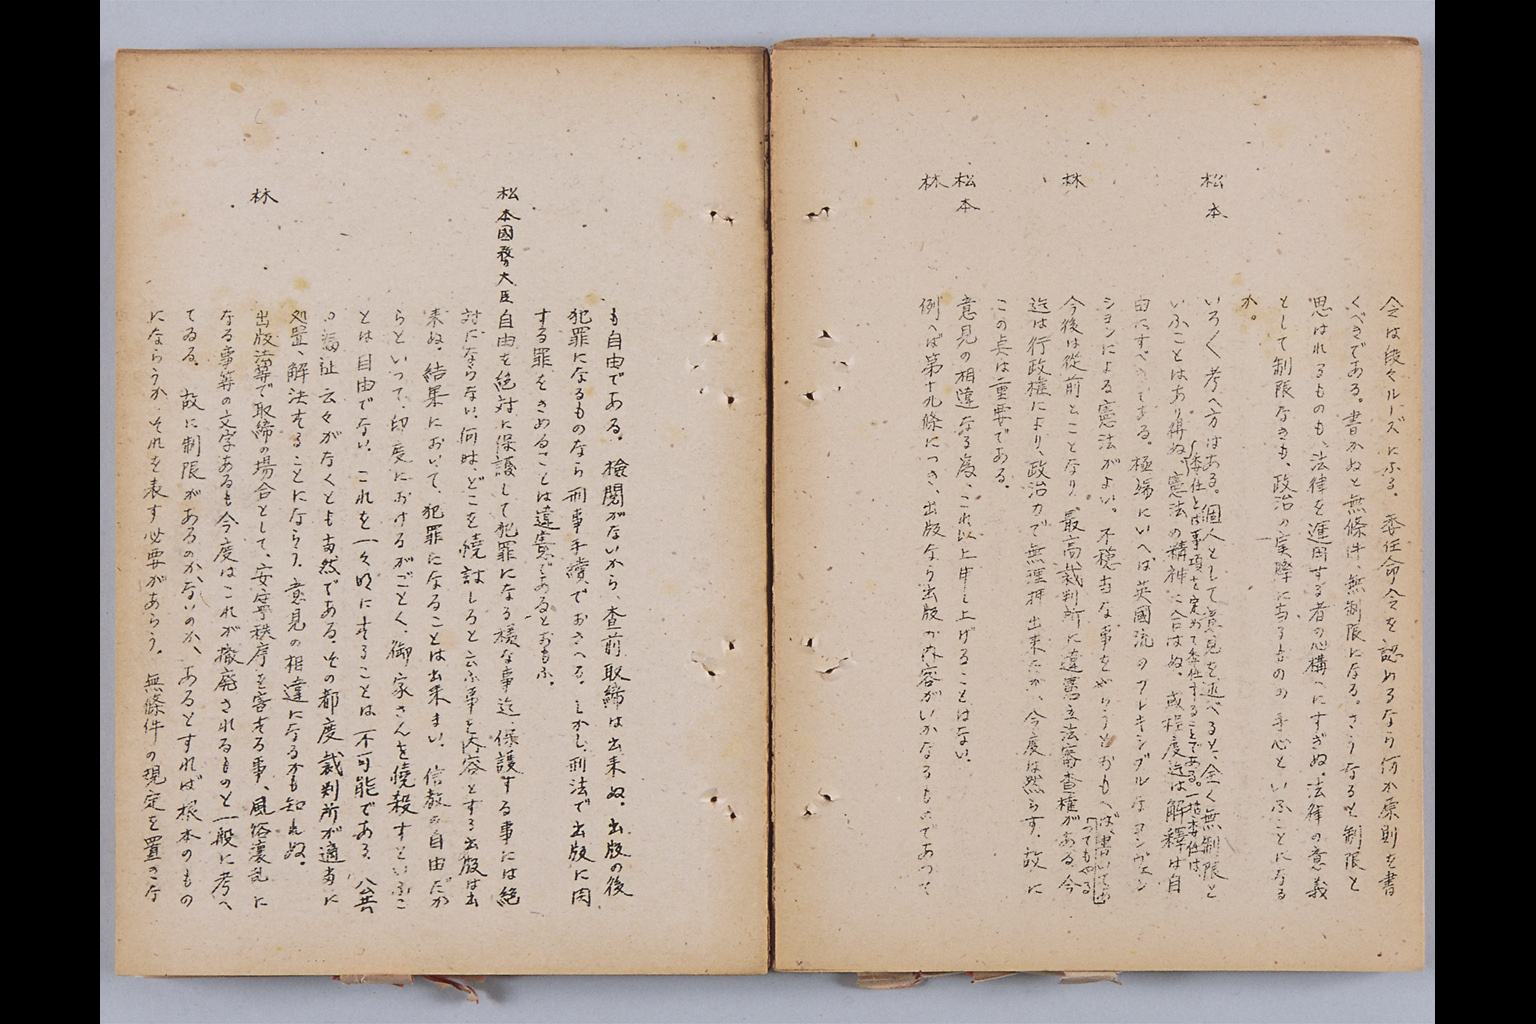 令は段々ルーズになる。委任命令を認めるなら何か原則を書
くべきである。書かぬと無條件、無制限になる。さうなると制限と
思はれるものも、法律を運用する者の心構へにすぎぬ。法律の意義
として制限なきも、政治の実際に当るものの手心といふことになる
か。
松本 いろ〱考へ方はある。個人として意見を述べると、全く無制限と
いふことはあり得ぬ。憲法の精神に合はぬ。或程度迄は解釋は自
(委任とは事項を定めて委任することである。一括委任は
由にすべきである。極端にいへば英國流のフレキシブルなコンヴェン
ションによる憲法がよい。不穏当な事をやらうとおもへば、書いてあ
つてもやる
林 今後は從前とことなり、最高裁判所に違憲立法審査権がある。今
迄は行政権により、政治力で無理押出来たが、今度は然らず。故に
この点は重要である。
松本 意見の相違なる為、これ以上申し上げることはない。
林 例へば第十九條につき、出版なら出版が内容がいかなるものであつて
も自由である。檢閲がないから、査前取締は出来ぬ。出版の後
犯罪になるものなら刑事手續でおさへる。しかし、刑法で出版に関
する罪をきめることは違憲であるとおもふ。
松本國務大臣 自由を絶対に保護して犯罪になる様な事迄、保護する事には絶
対にならない。何時、どこを焼討しろと云ふ事を内容とする出版は出
来ぬ。結果において、犯罪になることは出来まい。信教の自由だか
らといつて、印度におけるがごとく、御家さんを焼殺すといふこ
とは自由でない。これを一々明にすることは不可能である。公共
の福祉云々がなくとも当然である。その都度裁判所が適当に
処置、解決することにならう。意見の相違になるかも知れぬ。
林 出版法等で取締の場合として、安寧秩序を害する事、風俗壊乱に
なる事等の文字あるも今度はこれが撤廃されるものと一般に考へ
てゐる。故に制限があるのかないのか、あるとすれば根本のもの
にならうか、それを表す必要があらう。無條件の規定を置きな